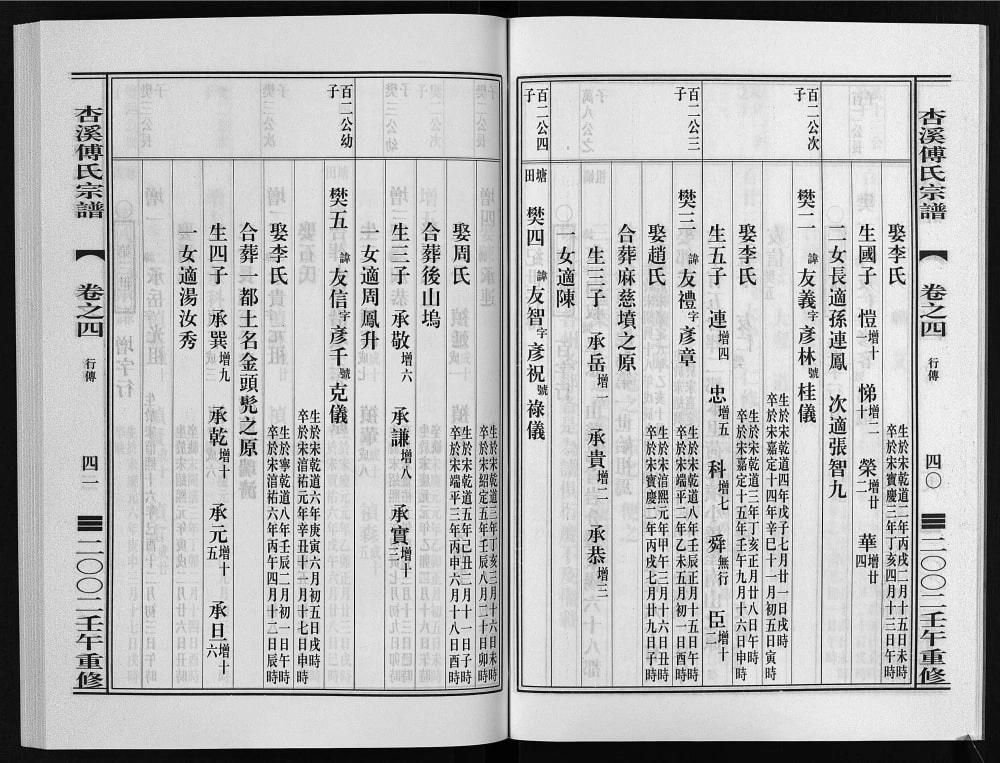 杏溪傅氏宗譜 【 卷之四 行傳 四〇 二〇〇二壬午重修
娶李氏 生於宋乾道二年丙戌二月十五日未時 卒於宋寶慶三年丁亥四月十三日午時
生國子 愷增十 悌增二十 榮增廿二 華增廿四
二女長適孫連鳳 次適張智九
百二公次子 樊二 諱友義字彥林號桂儀 生於宋乾道四年戊子七月廿一日戌時 卒於宋嘉定十四年辛巳十一月初五日寅時
娶李氏 生於宋乾道三年丁亥正月廿八日午時 卒於宋嘉定十五年壬午九月十六日申時
生五子 連增四 忠增五 科增七 舜無行 臣增十二
百二公三子 樊三 諱友禮字彥章 生於宋乾道八年壬辰正月十五日午時 卒於宋端平二年乙未五月初一日酉時
娶趙氏 生於宋淯熙元年甲午三月 卒於宋寶慶二年丙戌七月廿九日子時
合葬麻慈墳之原
生三子 承岳增一 承貴增二 承恭增三
一女適陳
百二公四子 塘田 樊四 諱友智字彥祝號祿儀
生於宋乾道三年丁亥三月十六日未時 卒於宋紹定五年壬辰八月二十日卯時
娶周氏 生於宋乾道五年己丑二月十一日子時 卒於宋端平三年丙申六月十八日酉時
合葬後山塢
生三子 承敬增六 承謙增八 承實增十三
一女適周鳳升
百二公幼子 樊五 諱友信字彥千號克儀 生於宋乾道六年庚寅六月初五日戌時 卒於宋淯祐元年辛丑十月十七日申時
娶李氏 生於寧乾道八年壬辰二月初一日午時 卒於宋淯祐六年丙午四月十二日辰時
合葬一都土名金頭髡之原
生四子 承巽增九 承乾增十 承元增十五 承旦增十六
一女適湯汝秀
杏溪傅氏宗譜 【 卷之四 行傳 四一 二〇〇二壬午重修